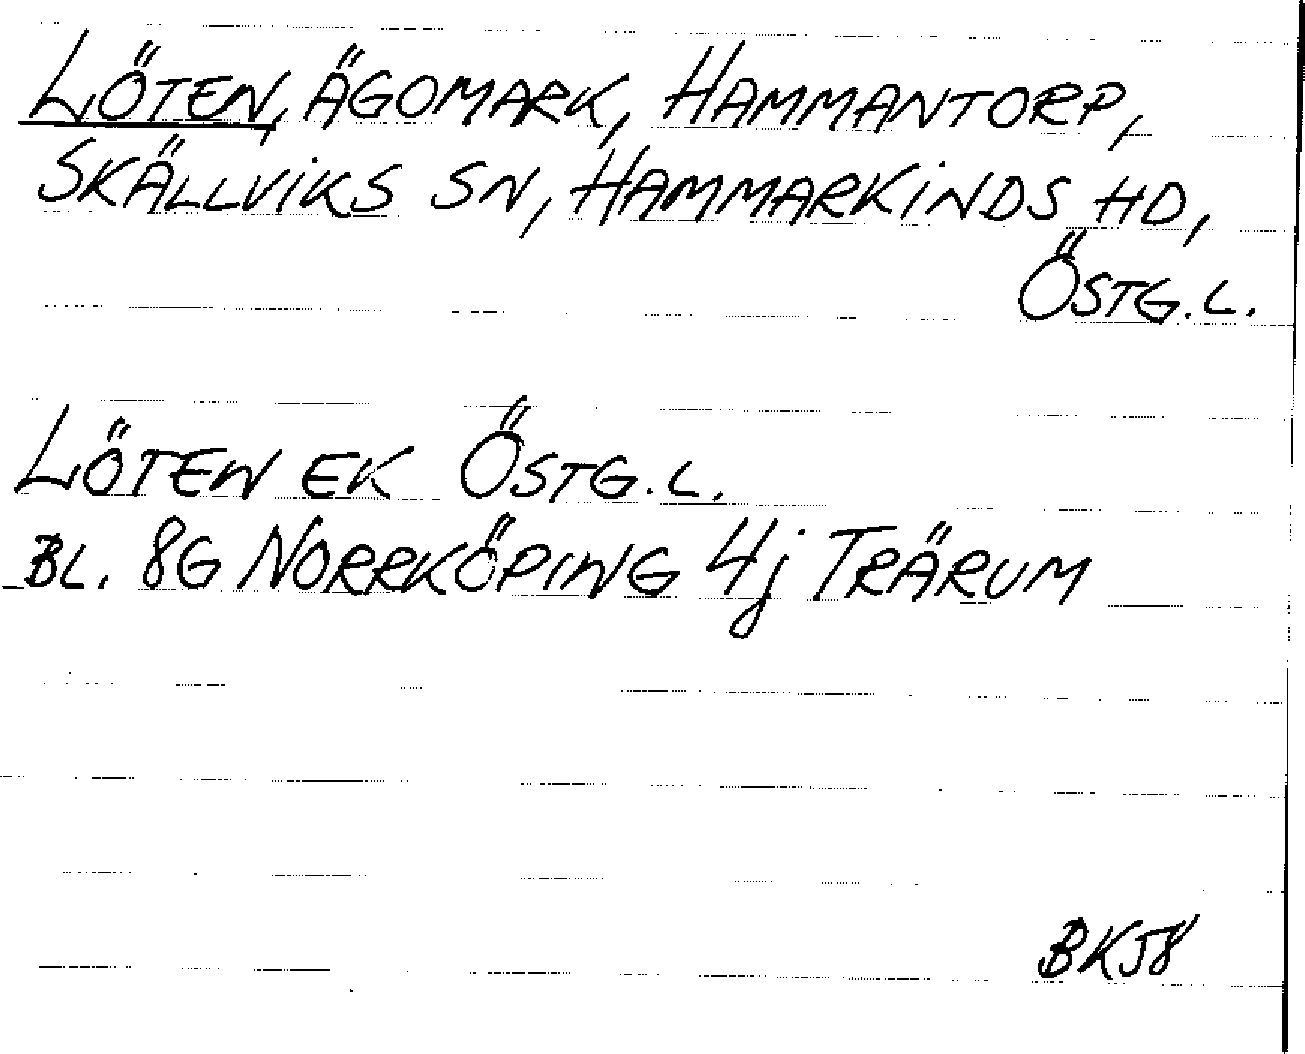 LÖTEN, ÄGOMARK, HAMMANTORP,
SKÄLLVIKS SN, HAMMARKINDS HD,
ÖSTG. L.
LÖTEN EK ÖSTG. L.
BL. 8G NORRKÖPING 4j TRÄRUM